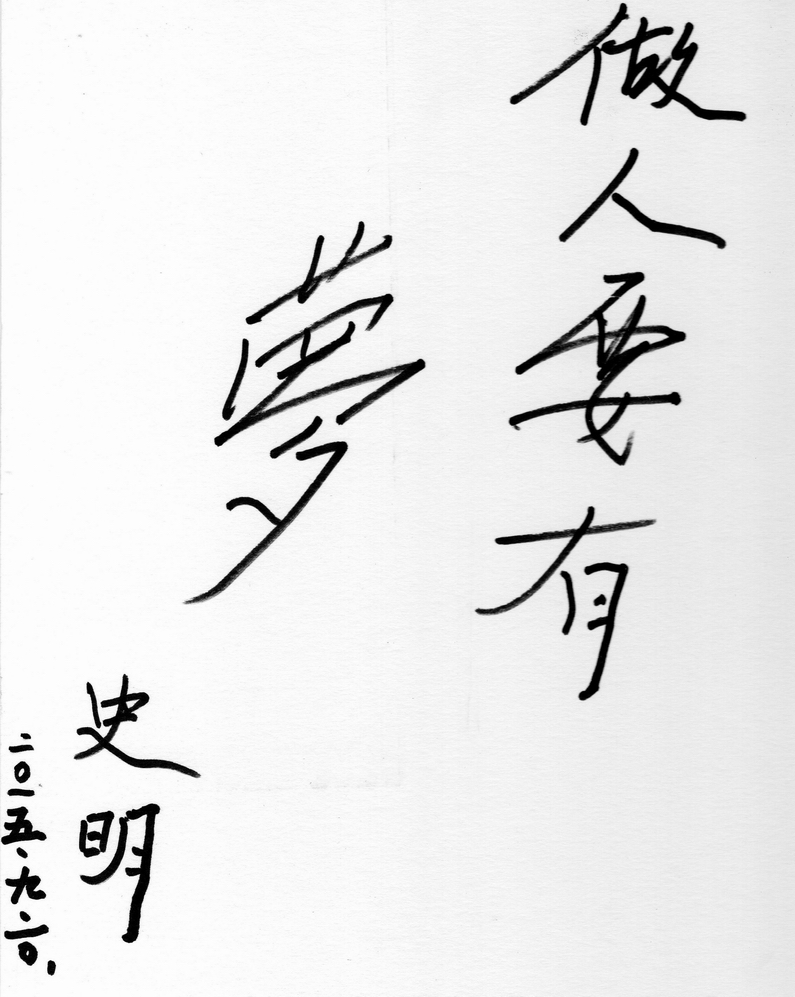 做人要有
夢
史明
二〇一五、九、二〇、